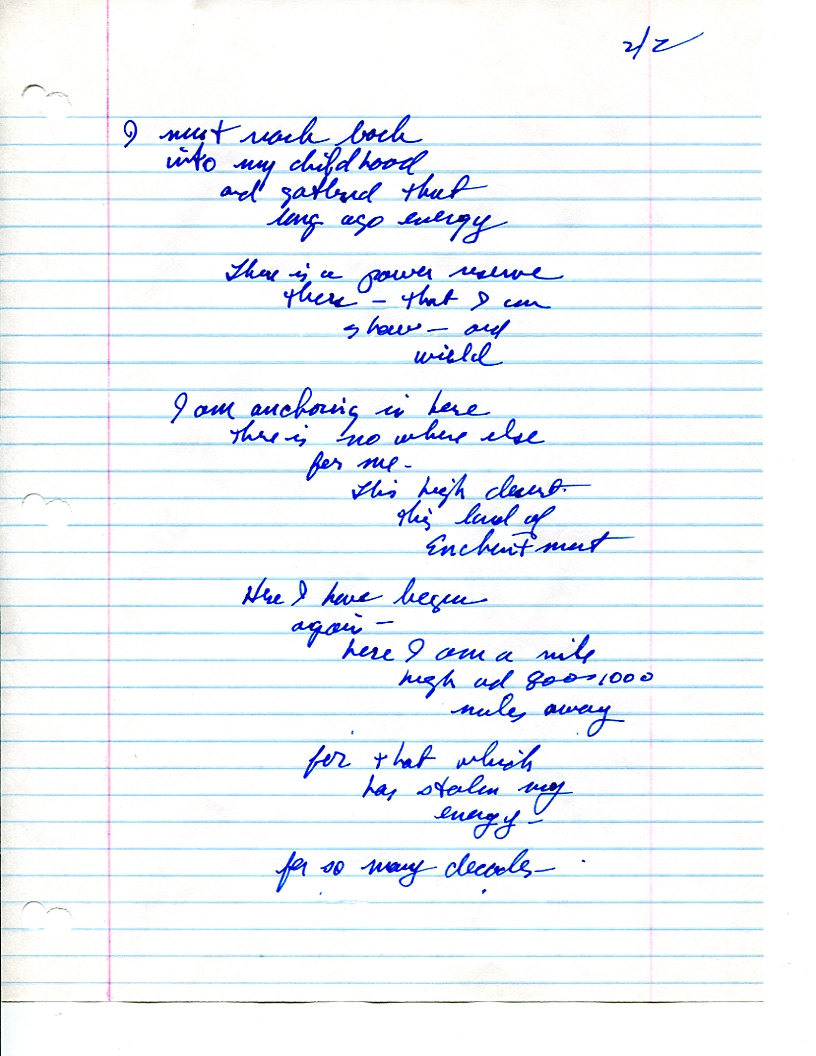 2/2
I must reach back
into my childhood
and gathered that
long ago energy
There is a power reserve
there – that I can
share – and
wield
I am anchoring in here
there is no where else
for me.
This high desert
this land of
Enchantment
Here I have begun
again –
here I am a mile
high and 800 1000
miles away
for that which
has stolen my
energy –
for so many decades –